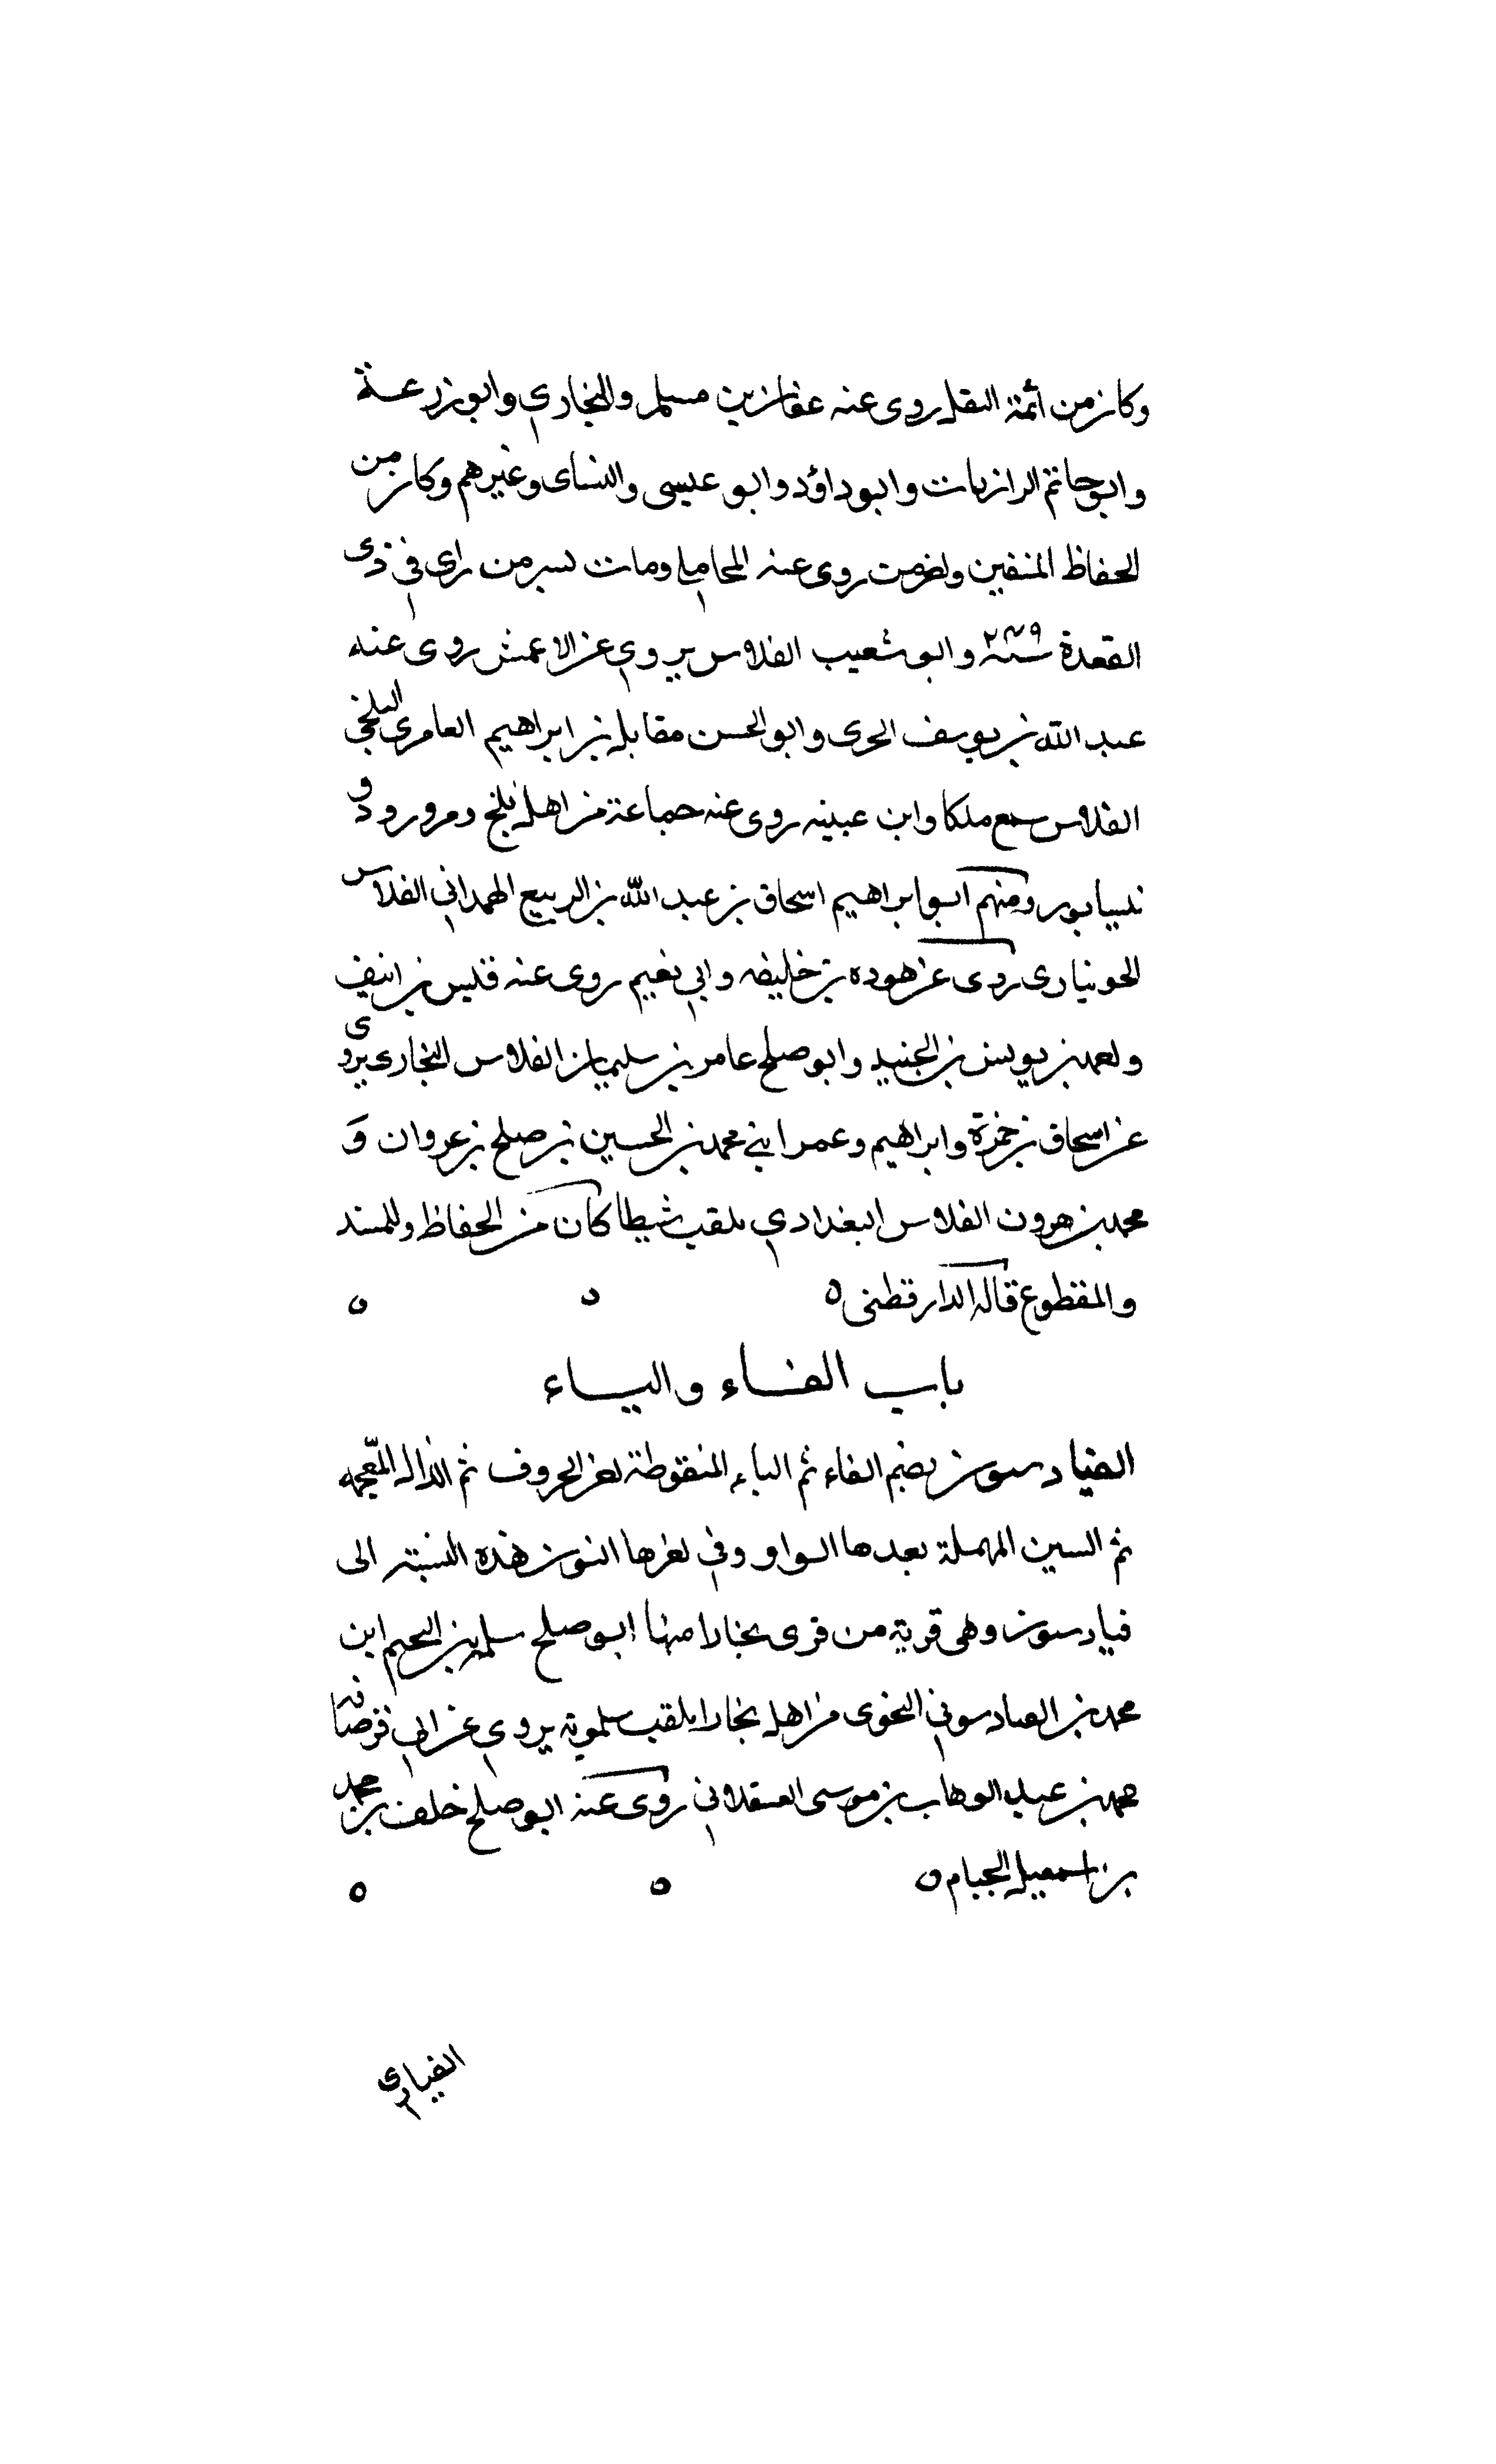 وكان من ائمة النقل روى عنه عفان بن مسلم والبخاري وابو زرعة
وابو حاتم الرازيان وابو داؤد وابو عيسى والنساى وغيرهم وكان من
الحفاظ المتقنين روى عنه المحاملي ومات بسر من راى في ذى
القعدة سنة ٢٤٩ وابو شعيب الفلاس يروي عن الاعمش روى عنه
عبد الله بن يوسف وابو الحسن مقاتل بن ابراهيم العامرى البلخي
الفلاس سمع ملكا وابن عيينه روى عنه جماعة من اهل بلخ ومرو رود و
نيسابور ومنهم ابو ابراهيم اسحاق بن عبد الله بن الربيع الهمداني الفلاس
روى عن هوده بن خليفه وابي نعيم روى عنه قيس بن انيف
بن يونس بن الجنيد وابو صلح عامر بن سليمان الفلاس البخارى يروى
عن اسحاق بن حمزة وابراهيم وعمر ابني محمد بن الحسين بن صلح بن عروان و
محمد بن هرون الفلاس البغدادي يلقب شيطا كان من الحفاظ وللمسند
والمقطوع قاله الدارقطنى ٥ ٥ ٥
باب الفاء والياء
الفياذسون بضم الفاء ثم الياء المنقوطة الحروف ثم الذال المعجمه
ثم السين المهملة بعدها الواو وفي اخرها النون هذه النسبة الى
فياذسون وهى قرية من قرى بخارا منها ابو صلح سلمه بن النجم ابن
محمد بن الفياذسوني النحوى من اهل بخارا يلقب سلمويه يروي عن ابي قرصافه
محمد بن عبد الوهاب بن موسى العسقلاني روى عنه ابو صلح خلف بن محمد
بن اسمعيل الخيام ٥ ٥ ٥
الفيارى